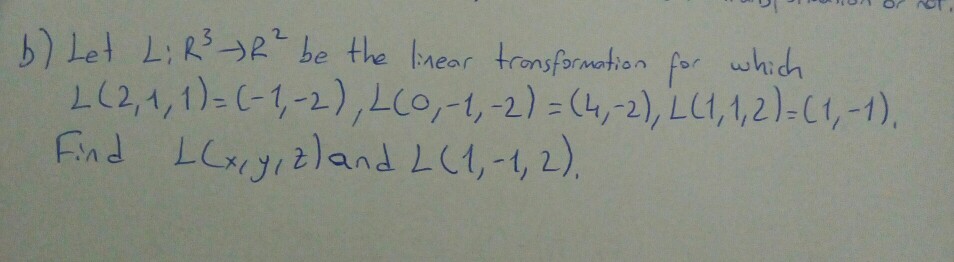 or not.
b) Let L: R³→R² be the linear transformation for which
L(2,1,1)=(-1,-2), L(0,-1,-2)=(4,-2), L(1,1,2)=(1,-1).
Find L(x,y,z) and L(1,-1,2).